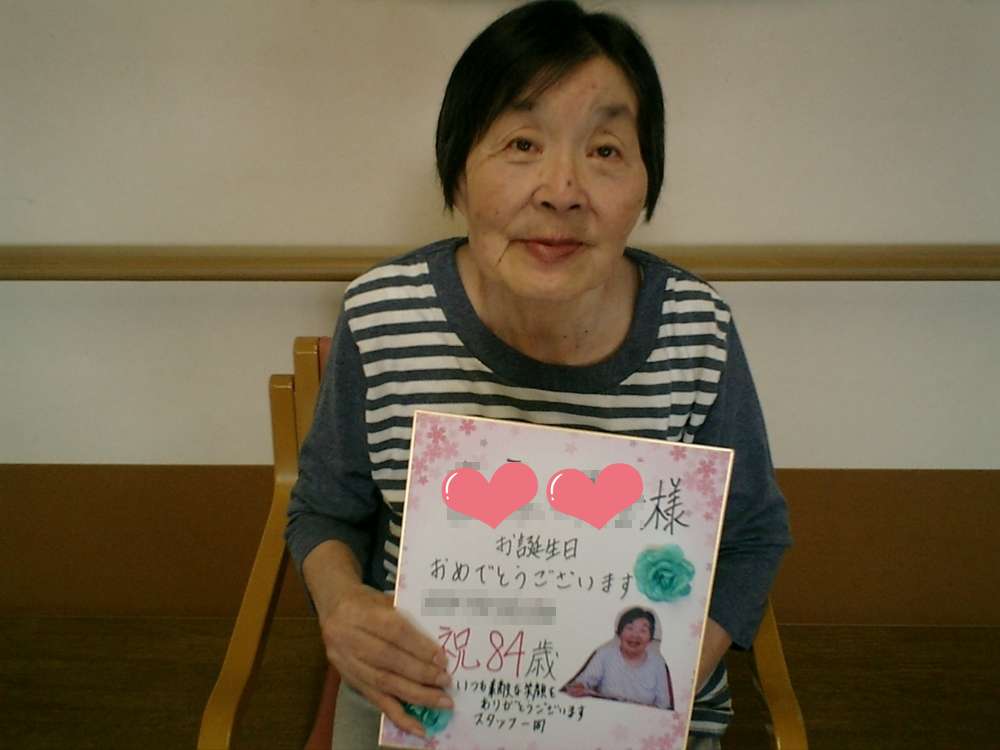 様
お誕生日
おめでとうございます
祝84歳
いつも素敵な笑顔を
ありがとうございます
スタッフ一同